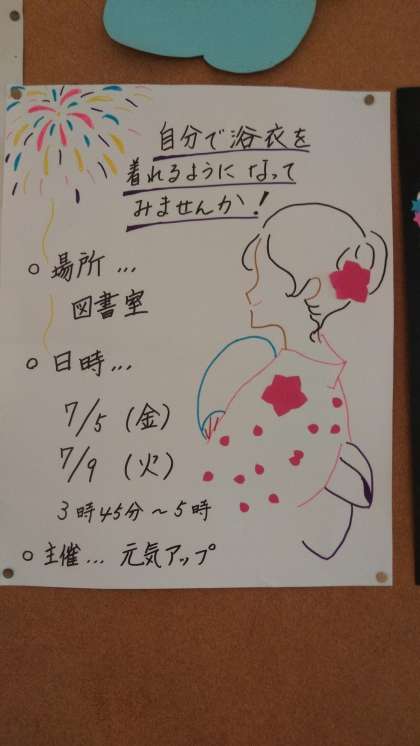 自分で浴衣を
着れるようになって
みませんか!
○ 場所...
図書室
○ 日時...
7/5 (金)
7/9 (火)
3時45分~5時
○ 主催... 元気アップ